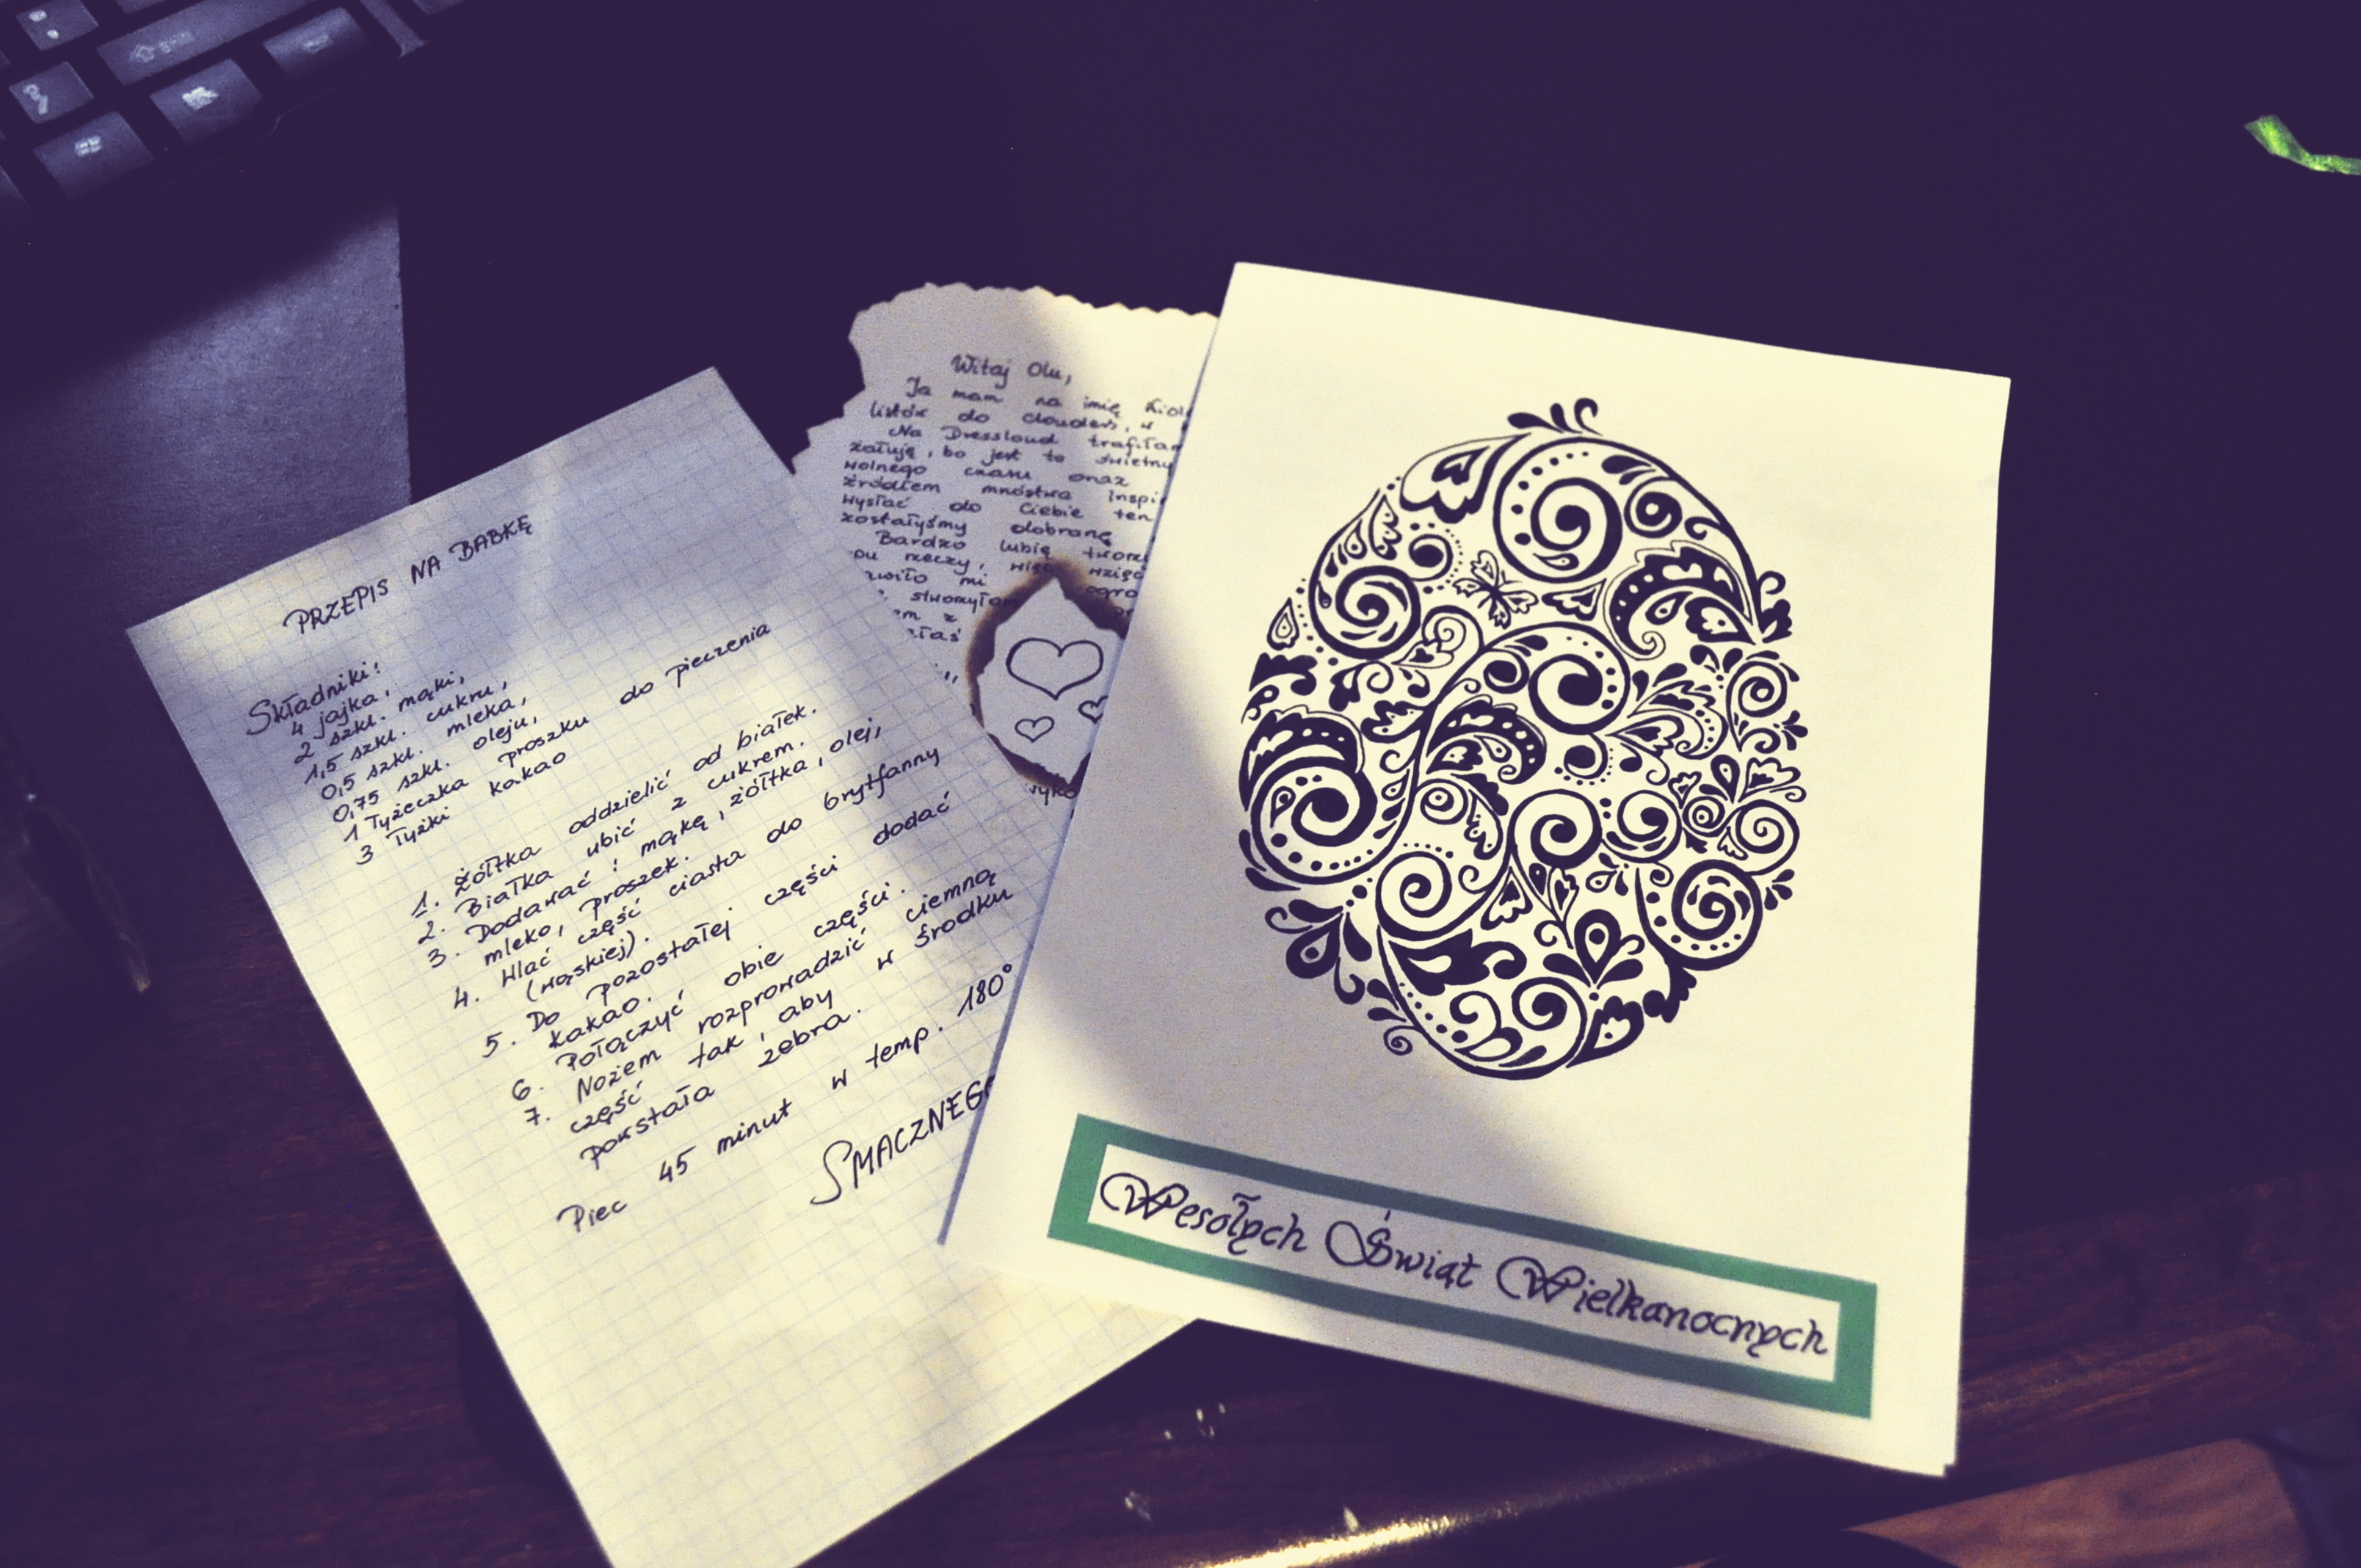 PRZEPIS NA BABKĘ
Składniki:
4 jajka,
2 szkl. mąki,
1,5 szkl. cukru,
0,5 szkl. mleka,
0,75 szkl. oleju,
1 łyżeczka proszku do pieczenia
3 łyżki kakao
1. Żółtka oddzielić od białek.
2. Białka ubić z cukrem.
3. Dodawać: mąkę, żółtka, olej,
mleko, proszek.
4. Wlać część ciasta do brytfanny
(wąskiej).
5. Do pozostałej części dodać
kakao.
6. Połączyć obie części.
7. Nożem rozprowadzić ciemną
część tak, aby w środku
powstała zebra.
Piec 45 minut w temp. 180°
SMACZNEGO
Witaj Olu,
Ja mam na imię
listów do clouders, w
Na Dresscloud trafiłam
żałuję, bo jest to świetny
wolnego czasu oraz
źródłem mnóstwa inspi
wysłać do Ciebie ten
zostałyśmy dobrane
Bardzo lubię tworz
pu rzeczy, więc wzięc
rwiło mi ogro
stworzyłam
em z
łaś
Wesołych Świąt Wielkanocnych